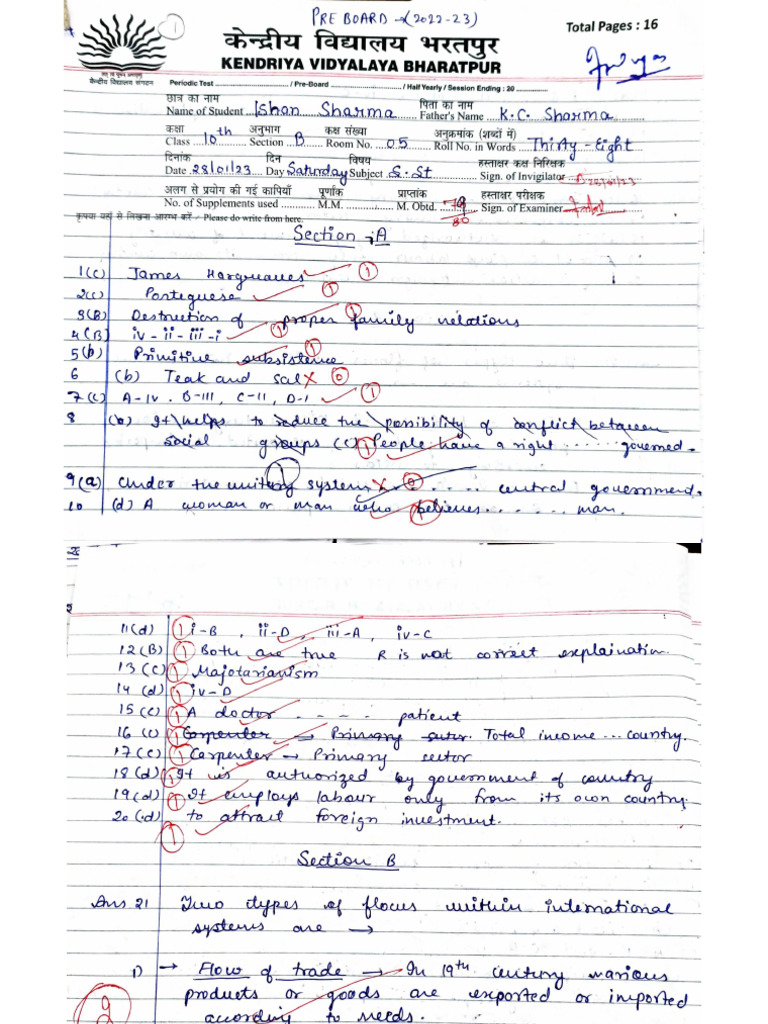 PRE BOARD → (2022-23)
1
Total Pages : 16
केन्द्रीय विद्यालय भरतपुर
KENDRIYA VIDYALAYA BHARATPUR
केन्द्रीय विद्यालय संगठन
Periodic Test ........ / Pre-Board ........ / Half Yearly / Session Ending : 20 ........
छात्र का नाम पिता का नाम
Name of Student Ishan Sharma Father's Name K.C. Sharma
कक्षा अनुभाग कक्ष संख्या अनुक्रमांक (शब्दों में)
Class 10th Section B Room No. 05 Roll No. in Words Thirty-Eight
दिनांक दिन विषय हस्ताक्षर कक्ष निरिक्षक
Date 28/01/23 Day Saturday Subject S.St Sign. of Invigilator 28/01/23
अलग से प्रयोग की गई कापियाँ पूर्णांक प्राप्तांक हस्ताक्षर परीक्षक
No. of Supplements used ........ M.M. ........ M. Obtd. 79/80 Sign. of Examiner
कृपया यहाँ से लिखना आरम्भ करें - Please do write from here.
Section - A
1(c) James Hargreaves 1
2(c) Porteguese 1
3(B) Destruction of proper family relations 1
4(B) iv - ii - iii - i 1
5(b) Primitive subsistence 1
6 (b) Teak and sal 0
7(c) A-IV. B-III, C-II, D-I 1
8 (a) It helps to reduce the possibility of conflict between
social groups (c) People have a right ...... governed. 1
9(a) Under the unitary system ...... central government. 0 1
10 (d) A woman or man who believes ....... man. 1
2
11(d) 1 i-B, ii-D, iii-A, iv-C
12(B) 1 Both are true R is not correct explaination.
13(C) 1 Majotarianism
14(d) 1 iv-D
15(c) 1 A doctor .... patient
16(c) 1 Carpenter → Primary sector. Total income ... country.
17(c) 1 Carpenter → Primary sector
18(d) 1 It is authorized by government of country
19(d) 1 It employs labour only from its own country.
20(d) to attract foreign investment.
1
Section B
Ans 21 Two types of flows within international
systems are →
1) → Flow of trade → In 19th century various
products or goods are exported or imported
2 according to needs.